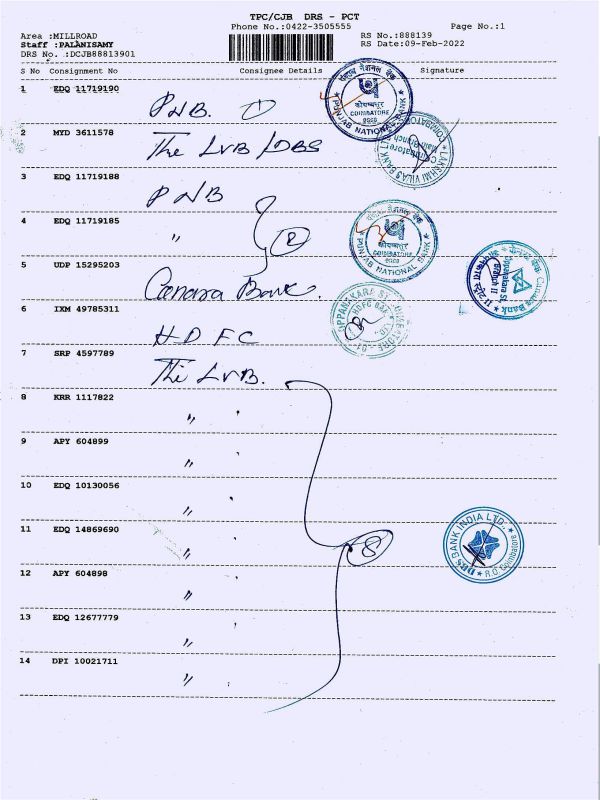 TPC/CJB DRS - PCT
Phone No.:0422-3505555
Page No.:1
Area :MILLROAD
RS No.:888139
Staff :PALANISAMY
RS Date:09-Feb-2022
DRS No. :DCJB88813901
S No Consignment No Consignee Details Signature
1 EDQ 11719190
PNB.
पंजाब नैशनल बैंक
कोयम्बत्तूर
COIMBATORE
PUNJAB NATIONAL BANK
2 MYD 3611578
The LVB/DBS
LAKSHMI VILAS BANK LTD
Coimbatore
Main Branch
COIMBATORE
3 EDQ 11719188
PNB
4 EDQ 11719185
〃
2
पंजाब नैशनल बैंक
कोयम्बत्तूर
COIMBATORE
PUNJAB NATIONAL BANK
5 UDP 15295203
Canara Bank.
केनरा बैंक
Canara Bank
Oppanakara St,
Branch II
6 IXM 49785311
HDFC
OPPANAKARA ST
HDFC BANK LTD
7 SRP 4597789
The LVB.
8 KRR 1117822
〃 '
9 APY 604899
〃 '
10 EDQ 10130056
〃 '
11 EDQ 14869690
〃 '
8
DBS BANK INDIA LTD.
R.O. Coimbatore
12 APY 604898
〃 '
13 EDQ 12677779
〃 '
14 DPI 10021711
〃 '